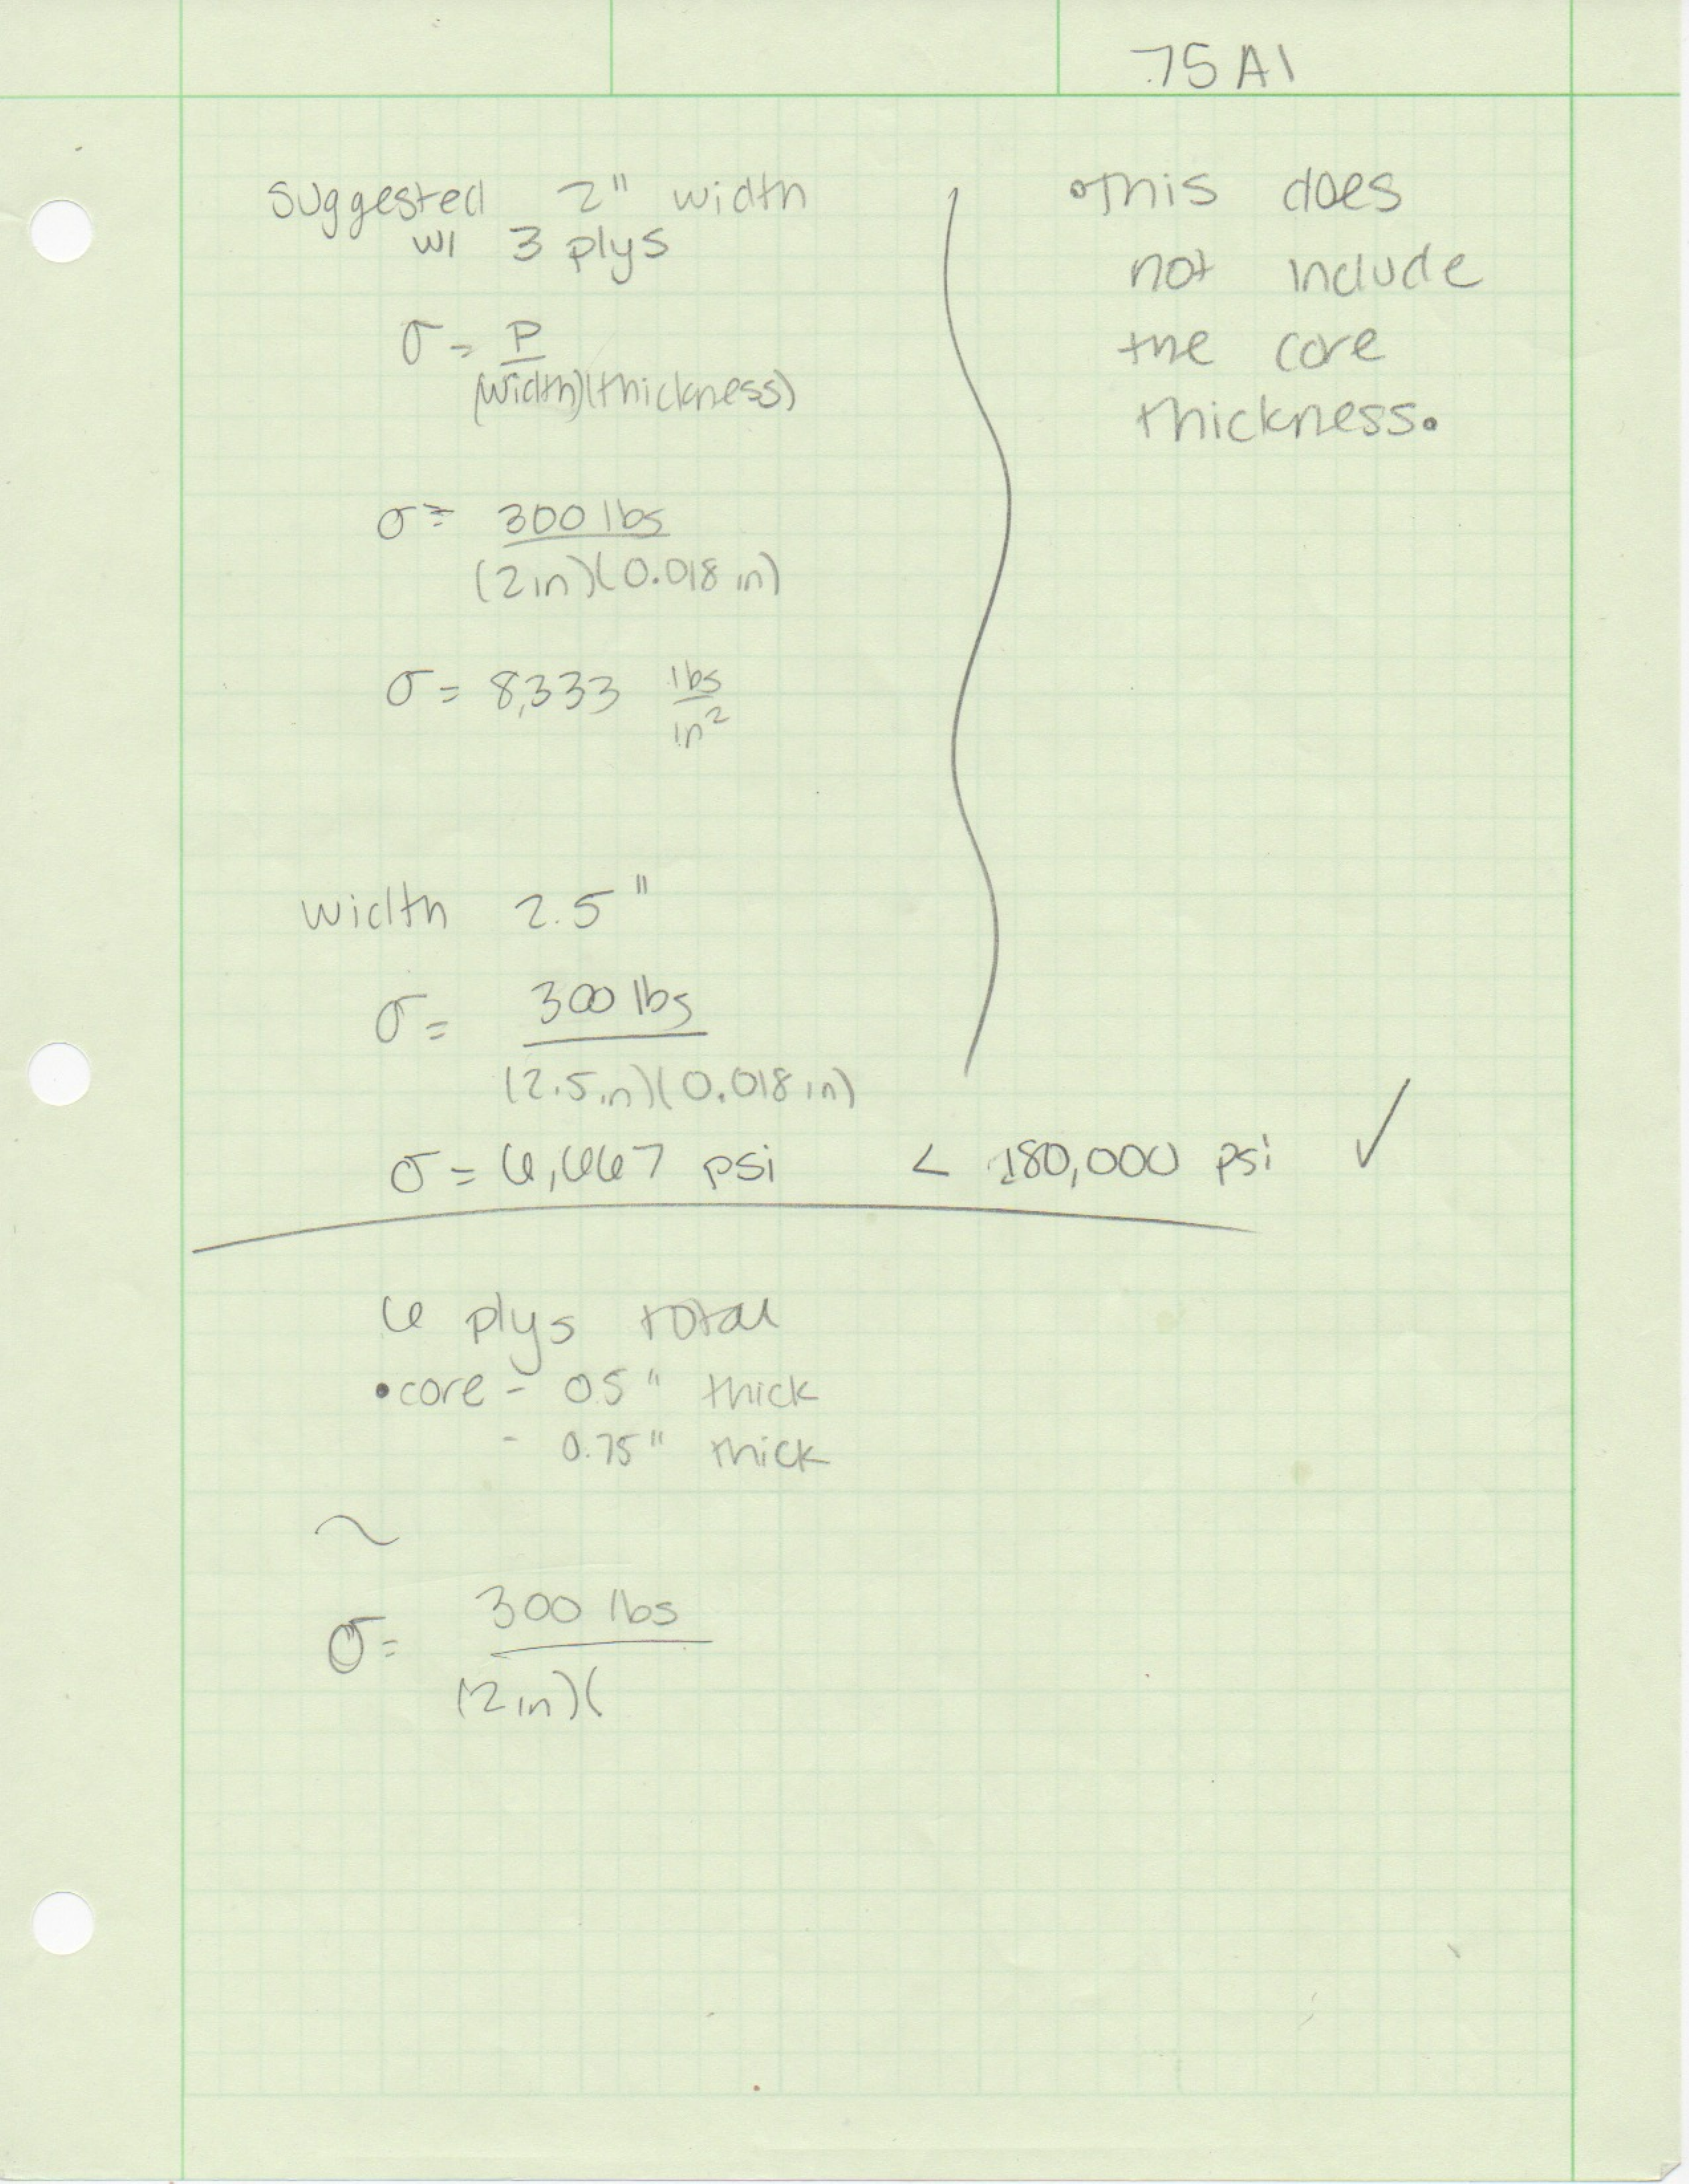 .75 Al
Suggested 2" width
w/ 3 plys
σ = P
(width)(thickness)
σ = 300 lbs
(2in)(0.018 in)
σ = 8,333 lbs
in²
width 2.5"
σ = 300 lbs
(2.5in)(0.018 in)
σ = 6,667 psi < 180,000 psi ✓
•This does
not include
the core
thickness.
6 plys total
•core - 0.5" thick
- 0.75" thick
~
σ = 300 lbs
(2in)(